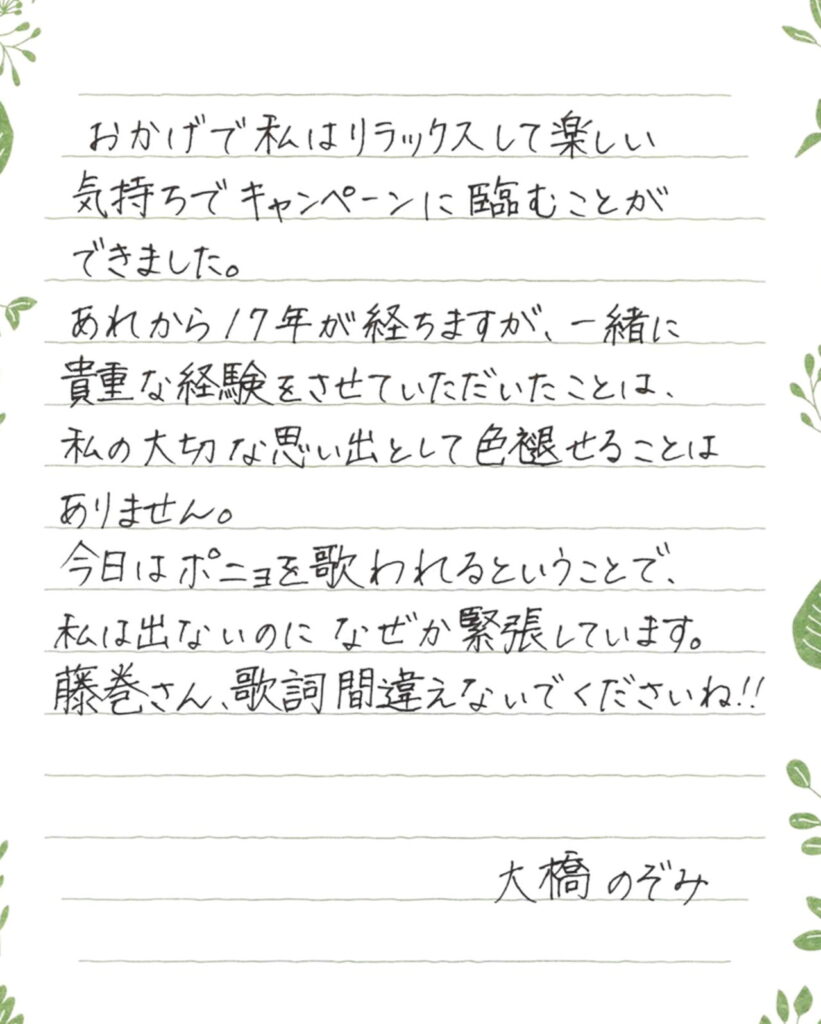 おかげで私はリラックスして楽しい
気持ちでキャンペーンに臨むことが
できました。
あれから17年が経ちますが、一緒に
貴重な経験をさせていただいたことは、
私の大切な思い出として色褪せることは
ありません。
今日はポニョを歌われるということで、
私は出ないのになぜか緊張しています。
藤巻さん、歌詞間違えないでくださいね!!
大橋のぞみ